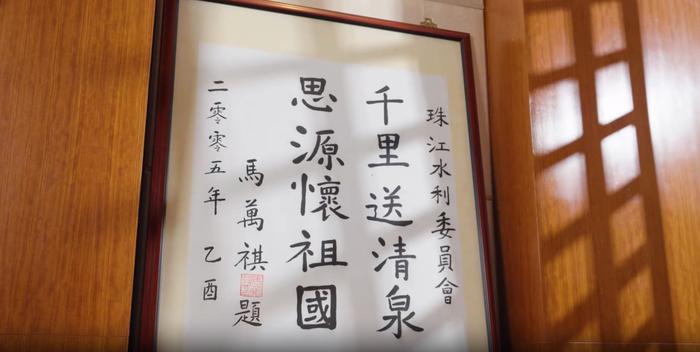 珠江水利委員會
千里送清泉
思源懷祖國
馬萬祺題
二零零五年 乙酉